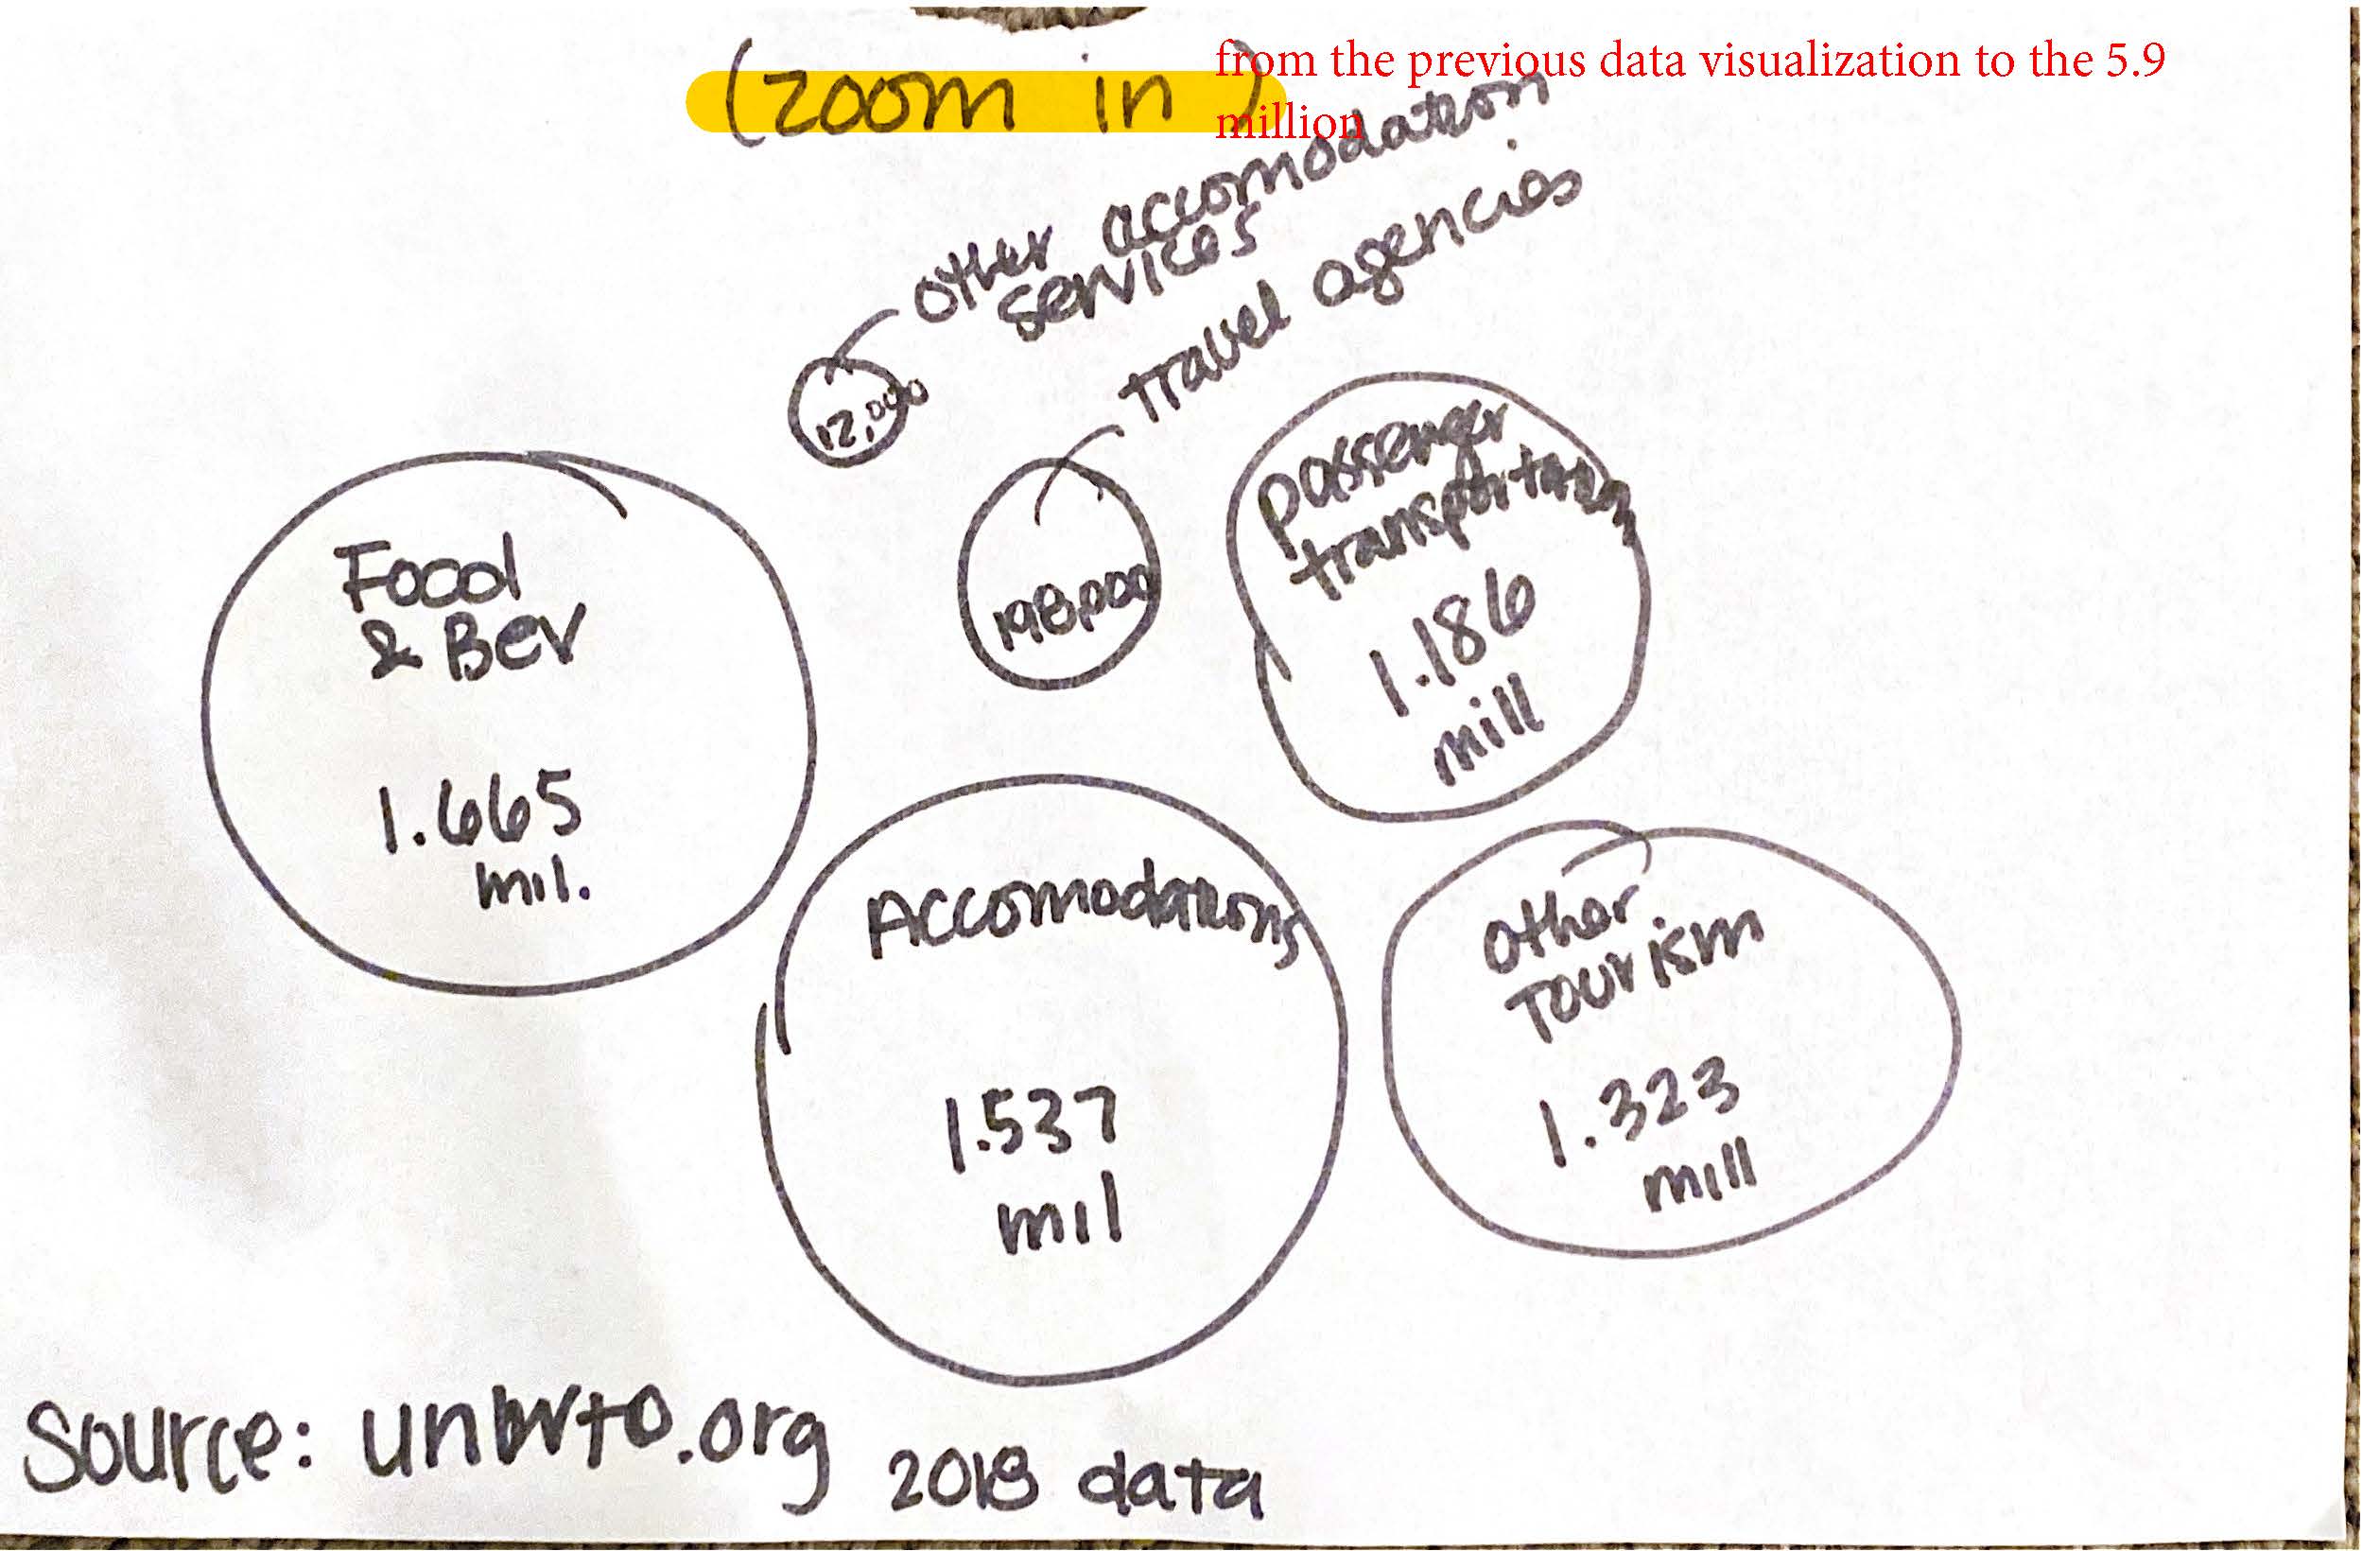 (zoom in)
from the previous data visualization to the 5.9
million
other accomodation
services
travel agencies
12,000
198,000
passenger
transportation
1.186
mill
Food
& Bev
1.665
mil.
Accomodations
1.537
mil
other
Tourism
1.323
mill
Source: unwto.org
2018 data